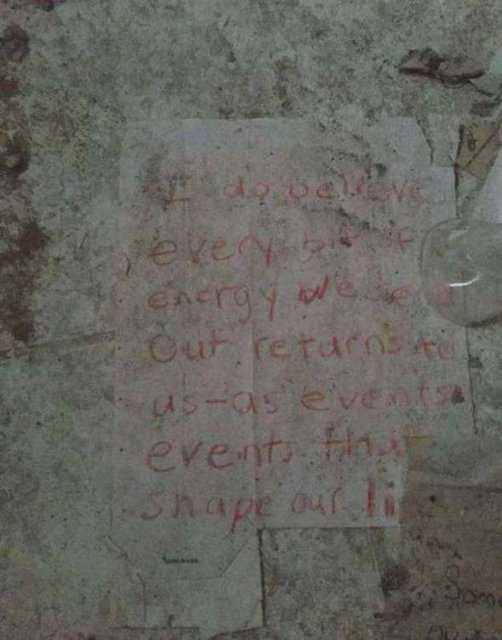 I do believe
every bit of
energy we send
out returns to
us-as events
events that
shape our li
Som